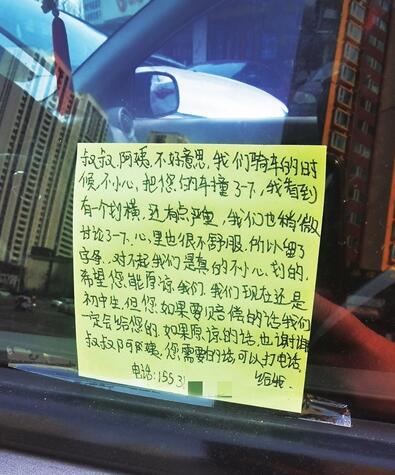 叔叔、阿姨、不好意思、我们骑车的时
候、不小心、把您的车撞了一下、我看到
有一个划横、还有点严重、我们也稍微
讨论了一下、心里也很不舒服、所以留了
字条、对不起我们是真的不小心划的、
希望您能原谅我们、我们现在还是
初中生、但您如果要赔偿的话我们
一定会给您的、如果原谅的话也谢谢
叔叔阿姨、您需要的话、可以打电话
电话:1553 给我.